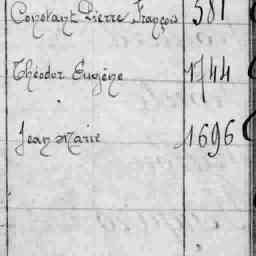 Constant Pierre François 581
Théodor Eugène 1744
Jean Marie 1696